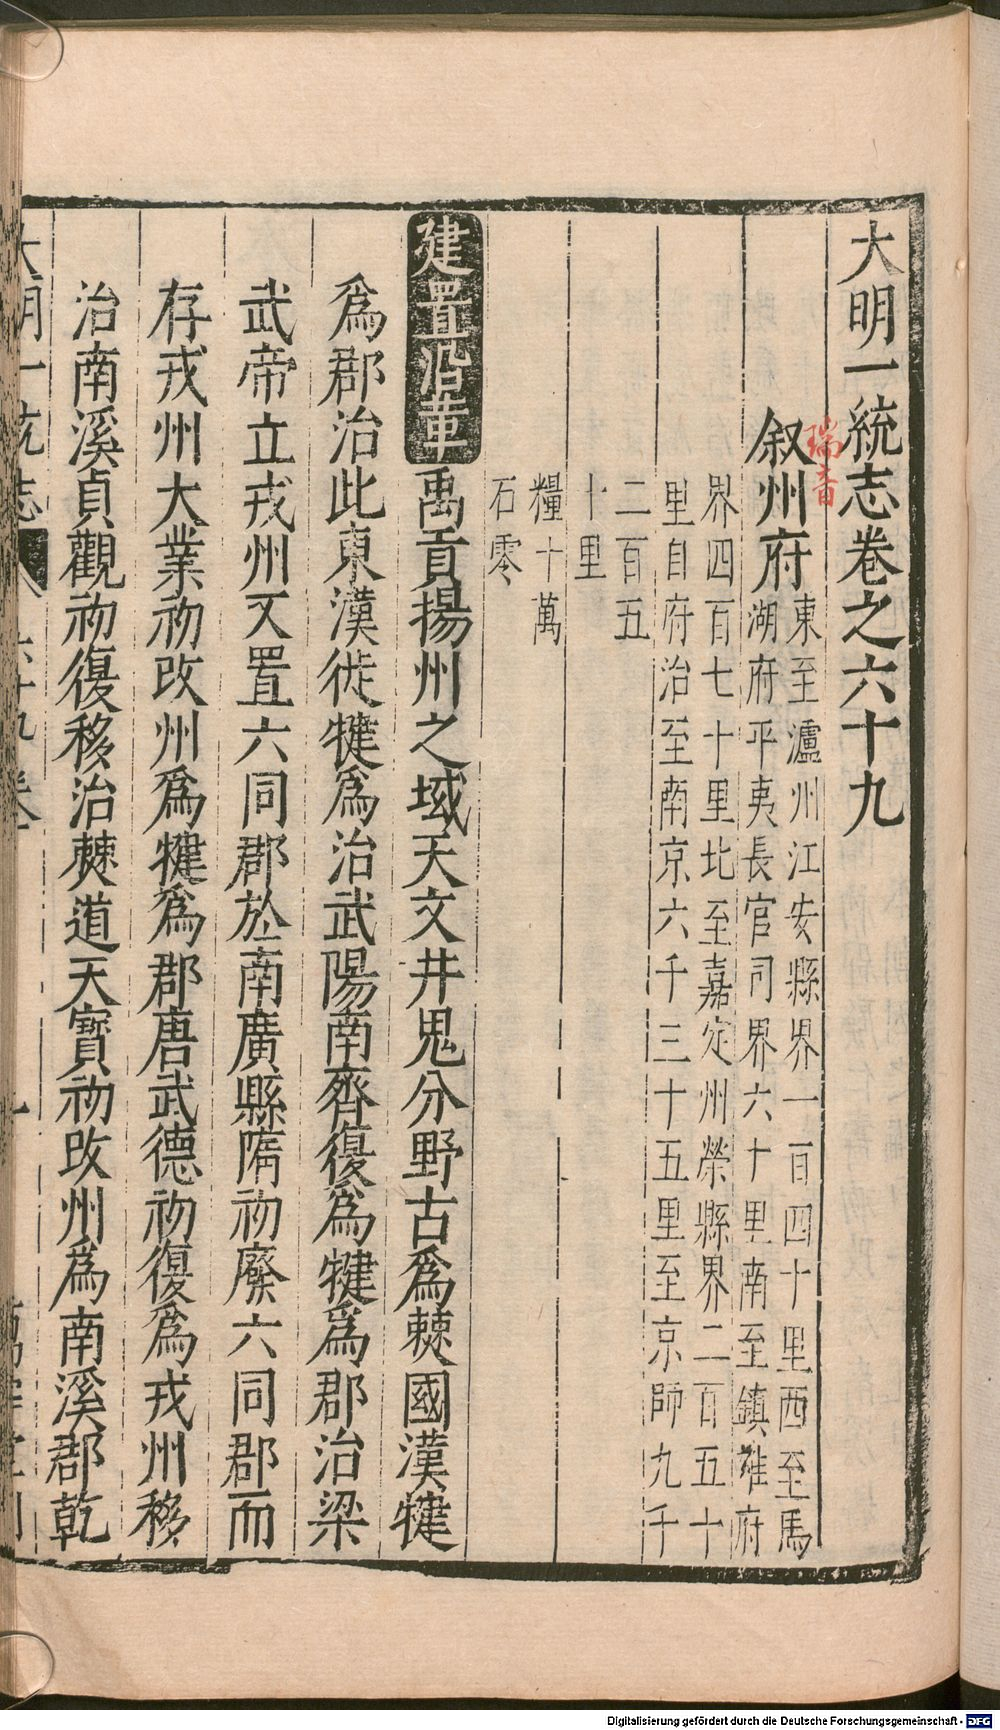 大明一統志卷之六十九
瑞音
叙州府
東至瀘州江安縣界一百四十里西至馬
湖府平夷長官司界六十里南至鎮雄府
界四百七十里北至嘉定州榮縣界二百五十
里自府治至南京六千三十五里至京師九千
二百五
十里
糧十萬
石零
建置沿革禹貢揚州之域天文井鬼分野古爲僰國漢犍
爲郡治此東漢徙犍爲治武陽南齊復爲犍爲郡治梁
武帝立戎州又置六同郡於南廣縣隋初廢六同郡而
存戎州大業初改州爲犍爲郡唐武德初復爲戎州移
治南溪貞觀初復移治僰道天寶初改州爲南溪郡乾
大明一統志 六十九卷 一
Digitalisierung gefördert durch die Deutsche Forschungsgemeinschaft - DFG